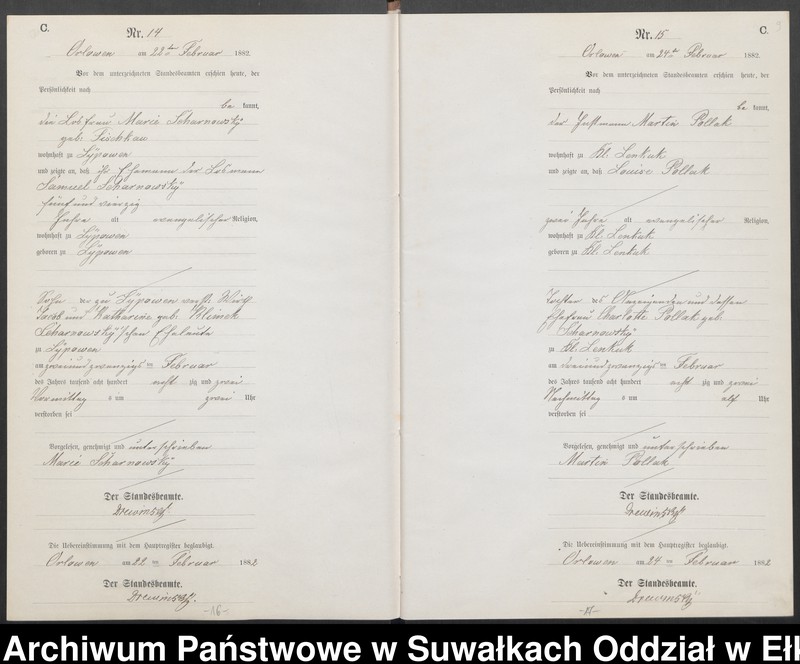 C.
Nr. 14
Orlowen am 22ten Februar 1882.
Vor dem unterzeichneten Standesbeamten erschien heute, der
Persönlichkeit nach
be kannt,
die Losfrau Marie Scharnowský
geb. Fischkau
wohnhaft zu Lýpowen
und zeigte an, daß ihr Ehemann der Losmann
Samuel Scharnowský
fünf und vierzig
Jahre alt evangelischer Religion,
wohnhaft zu Lýpowen
geboren zu Lýpowen
Sohn der zu Lýpowen Wirth
Jacob und Katharine geb.
Scharnowský'schen Eheleute
zu Lýpowen
am zweiundzwanzigsten Februar
des Jahres tausend acht hundert acht zig und zwei
Vormittag s um zwei Uhr
verstorben sei
Vorgelesen, genehmigt und unterschrieben
Marie Scharnowský
Der Standesbeamte.
Die Uebereinstimmung mit dem Hauptregister beglaubigt.
Orlowen am 22 ten Februar 1882
Der Standesbeamte.
-16-
C.
Nr. 15
Orlowen am 24ten Februar 1882.
Vor dem unterzeichneten Standesbeamten erschien heute, der
Persönlichkeit nach
be kannt,
der Martin Pollak
wohnhaft zu Kl. Lenkuk
und zeigte an, daß Louise Pollak
zwei Jahre alt evangelischer Religion,
wohnhaft zu Kl. Lenkuk
geboren zu Kl. Lenkuk
Tochter des Anzeigenden und dessen
Ehefrau Charlotte Pollak geb.
Scharnowský
zu Kl. Lenkuk
am dreiundzwanzigsten Februar
des Jahres tausend acht hundert acht zig und zwei
Nachmittag s um elf Uhr
verstorben sei
Vorgelesen, genehmigt und unterschrieben
Martin Pollak
Der Standesbeamte.
Die Uebereinstimmung mit dem Hauptregister beglaubigt.
Orlowen am 24 ten Februar 1882
Der Standesbeamte.
Archiwum Państwowe w Suwałkach Oddział w Ełk